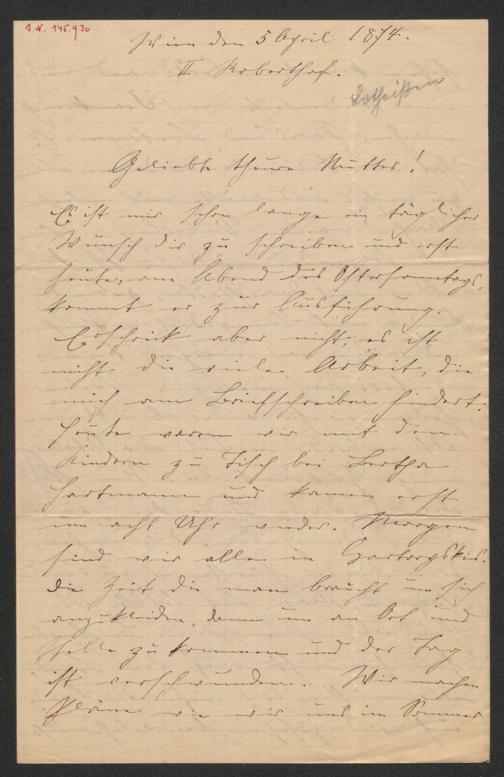 I.N. 145.930
Wien den 5 April 1874.
II. Roberthof.
Lotheißen
Geliebte theure Mutter!
Es ist mir schon lange ein täglicher
Wunsch dir zu schreiben und erst
heute, am Abend des Ostersonntags,
kommt er zur Ausführung.
Erschrick aber nicht, es ist
nicht die viele Arbeit, die
mich am Briefschreiben hindert.
Heute waren wir mit den
Kindern zu Tisch bei Bertha
Hartmann und kamen erst
um acht Uhr wieder. Morgen
sind wir alle in
Die Zeit die man braucht um sich
anzukleiden, dann um an Ort und
Stelle zu kommen und der Tag
ist verschwunden. Wir machen
Pläne wie wir uns im Sommer